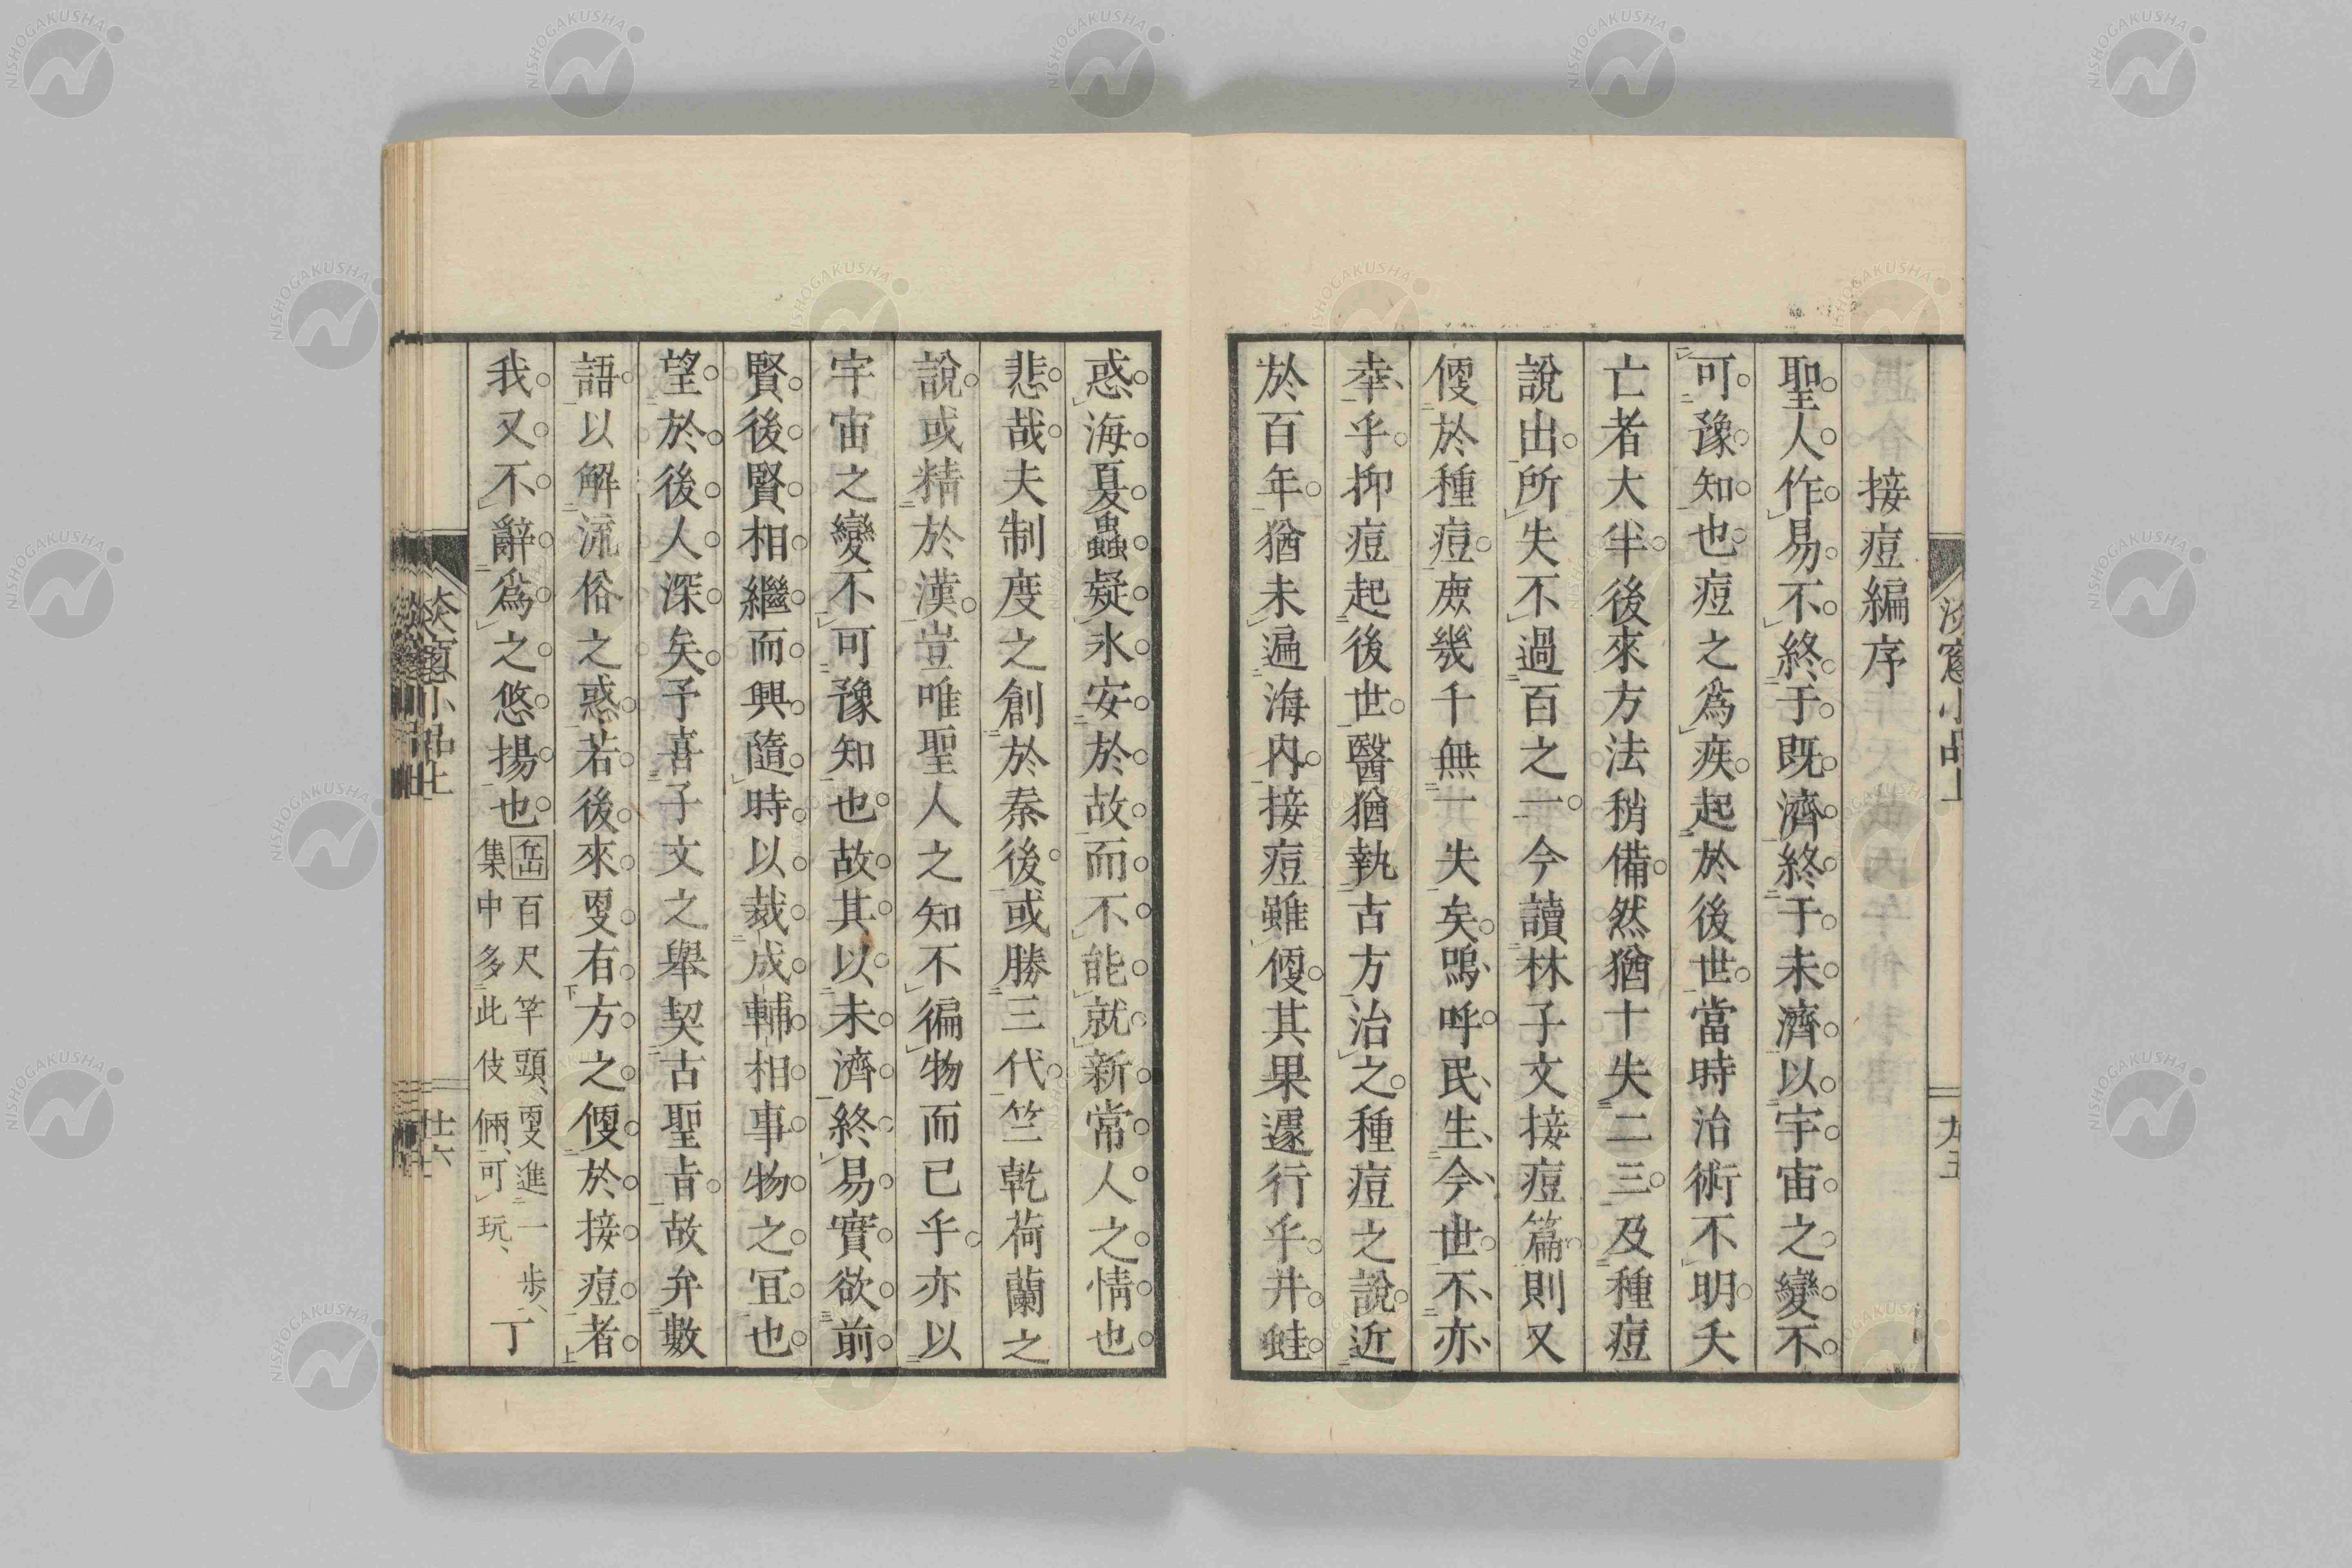 接痘編序
聖人作易不終于既濟終于未濟以宇宙之變不
可豫知也痘之爲疾起於後世當時治術不明夭
亡者大半後來方法稍備然猶十失二三及種痘
說出所失不過百之一今讀林子文接痘篇則又
便於種痘庶幾千無一失矣嗚呼民生今世不亦
幸乎抑痘起後世醫猶執古方治之種痘之說近
於百年猶未遍海内接痘雖便其果遽行乎井蛙
惑海夏蟲疑氷安於故而不能就新常人之情也
悲哉夫制度之創於秦後或勝三代竺乾荷蘭之
說或精於漢豈唯聖人之知不徧物而已乎亦以
宇宙之變不可豫知也故其以未濟終易實欲前
賢後賢相繼而興隨時以裁成輔相事物之宜也
望於後人深矣予喜子文之舉契古聖旨故弁數
語以解流俗之惑若後來更有方之便於接痘者
我又不辭爲之悠揚也
嵒百尺竿頭更進一步
集中多此伎倆可玩
丁
小品上
廿六
NISHOGAKUSHA